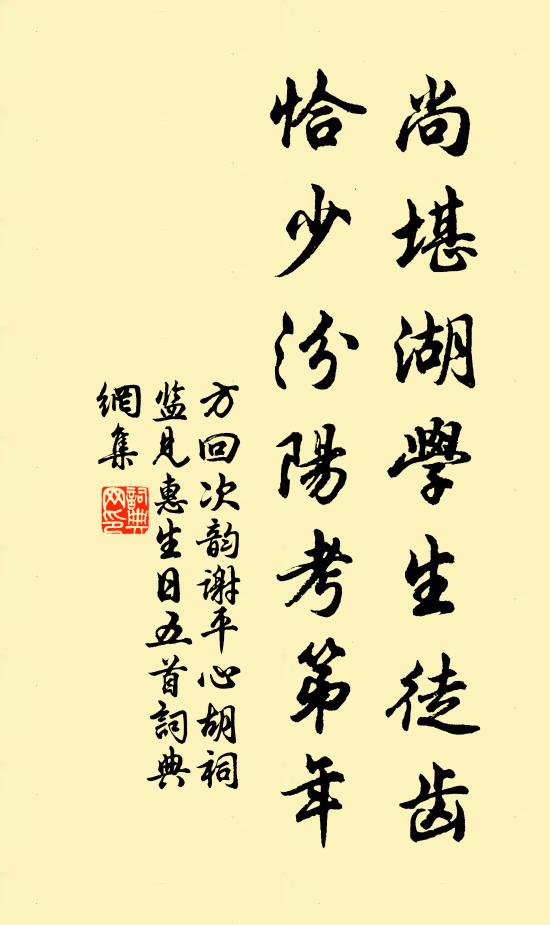 尚堪湖學生徒齿
恰少汾陽考第年
方回次韵谢平心胡祠
监見惠生日五首詞典
網集
詞典网印